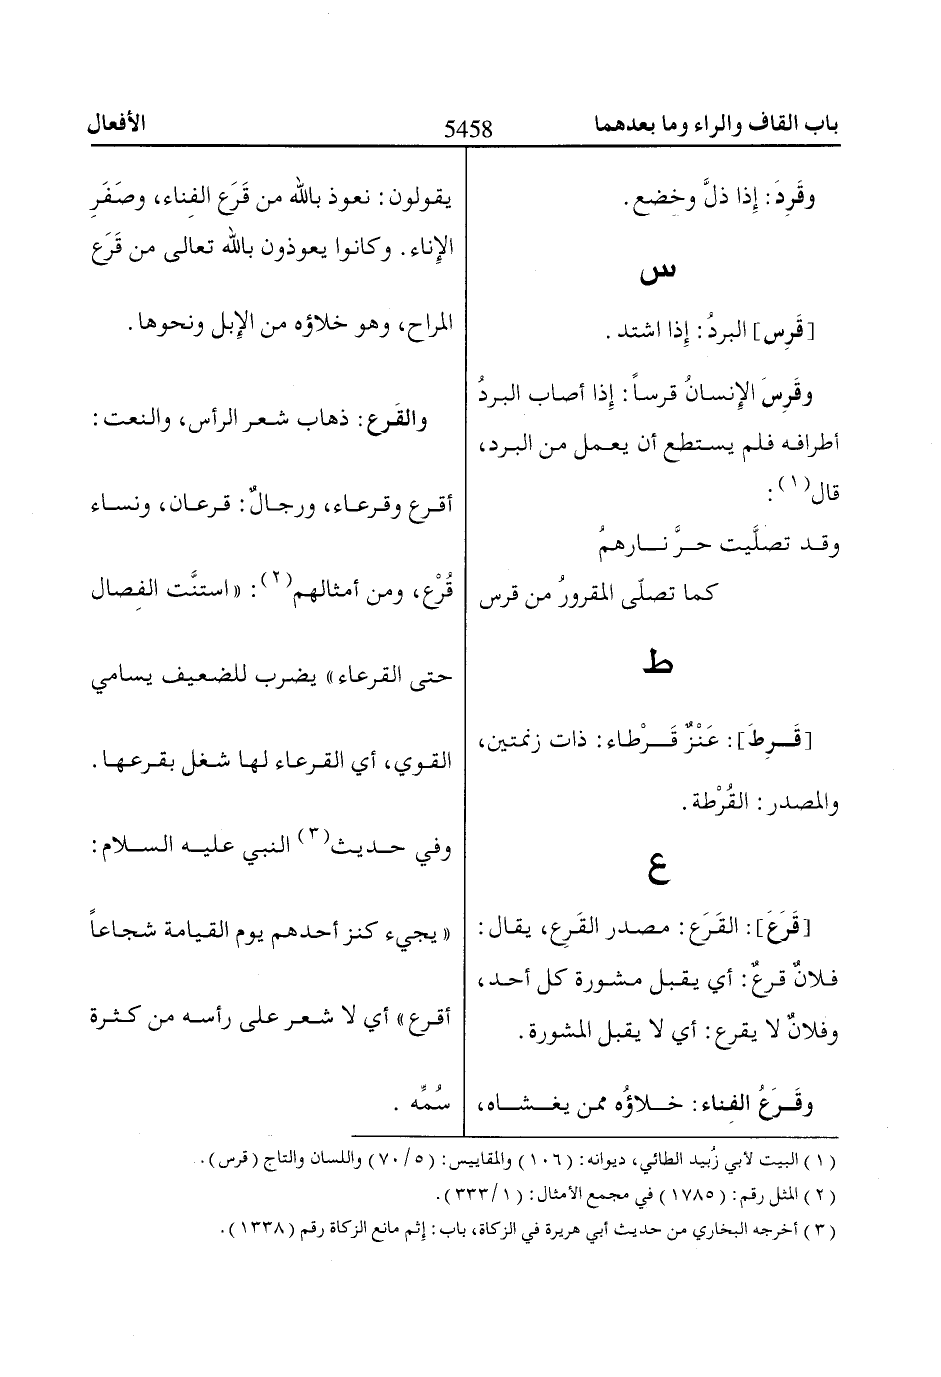 باب القاف والراء وما بعدهما
5458
الأفعال
وقَرِدَ: إذا ذلَّ وخضع.
س
[قَرِس] البردُ: إذا اشتد.
وقَرِسَ الإنسانُ قرساً: إذا أصاب البردُ
أطرافه فلم يستطع أن يعمل من البرد،
قال(١):
وقد تصلَّيت حرَّ نارهمُ
كما تصلّى المقرورُ من قرس
ط
[قَرِطَ]: عَنْزٌ قَرْطاء: ذات زنمتين،
والمصدر: القُرْطة.
ع
[قَرَعَ]: القَرَع: مصدر القَرِع، يقال:
فلانٌ قرعٌ: أي يقبل مشورة كل أحد،
وفلانٌ لا يقرع: أي لا يقبل المشورة.
وقَرَعُ الفناء: خلاؤُه ممن يغشاه،
يقولون: نعوذ بالله من قَرَع الفناء، وصَفَرِ
الإناء. وكانوا يعوذون بالله تعالى من قَرَع
المراح، وهو خلاؤه من الإبل ونحوها.
والقَرع: ذهاب شعر الرأس، والنعت:
أقرع وقرعاء، ورجالٌ: قرعان، ونساء
قُرْع، ومن أمثالهم(٢): «استنَّت الفصال
حتى القرعاء» يضرب للضعيف يسامي
القوي، أي القرعاء لها شغل بقرعها.
وفي حديث(٣) النبي عليه السلام:
«يجيء كنز أحدهم يوم القيامة شجاعاً
أقرع» أي لا شعر على رأسه من كثرة
سُمِّه.
(١) البيت لأبي زُبيد الطائي، ديوانه: (١٠٦) والمقاييس: (٥/٧٠) واللسان والتاج (قرس).
(٢) المثل رقم: (١٧٨٥) في مجمع الأمثال: (١/٣٣٣).
(٣) أخرجه البخاري من حديث أبي هريرة في الزكاة، باب: إثم مانع الزكاة رقم (١٣٣٨).